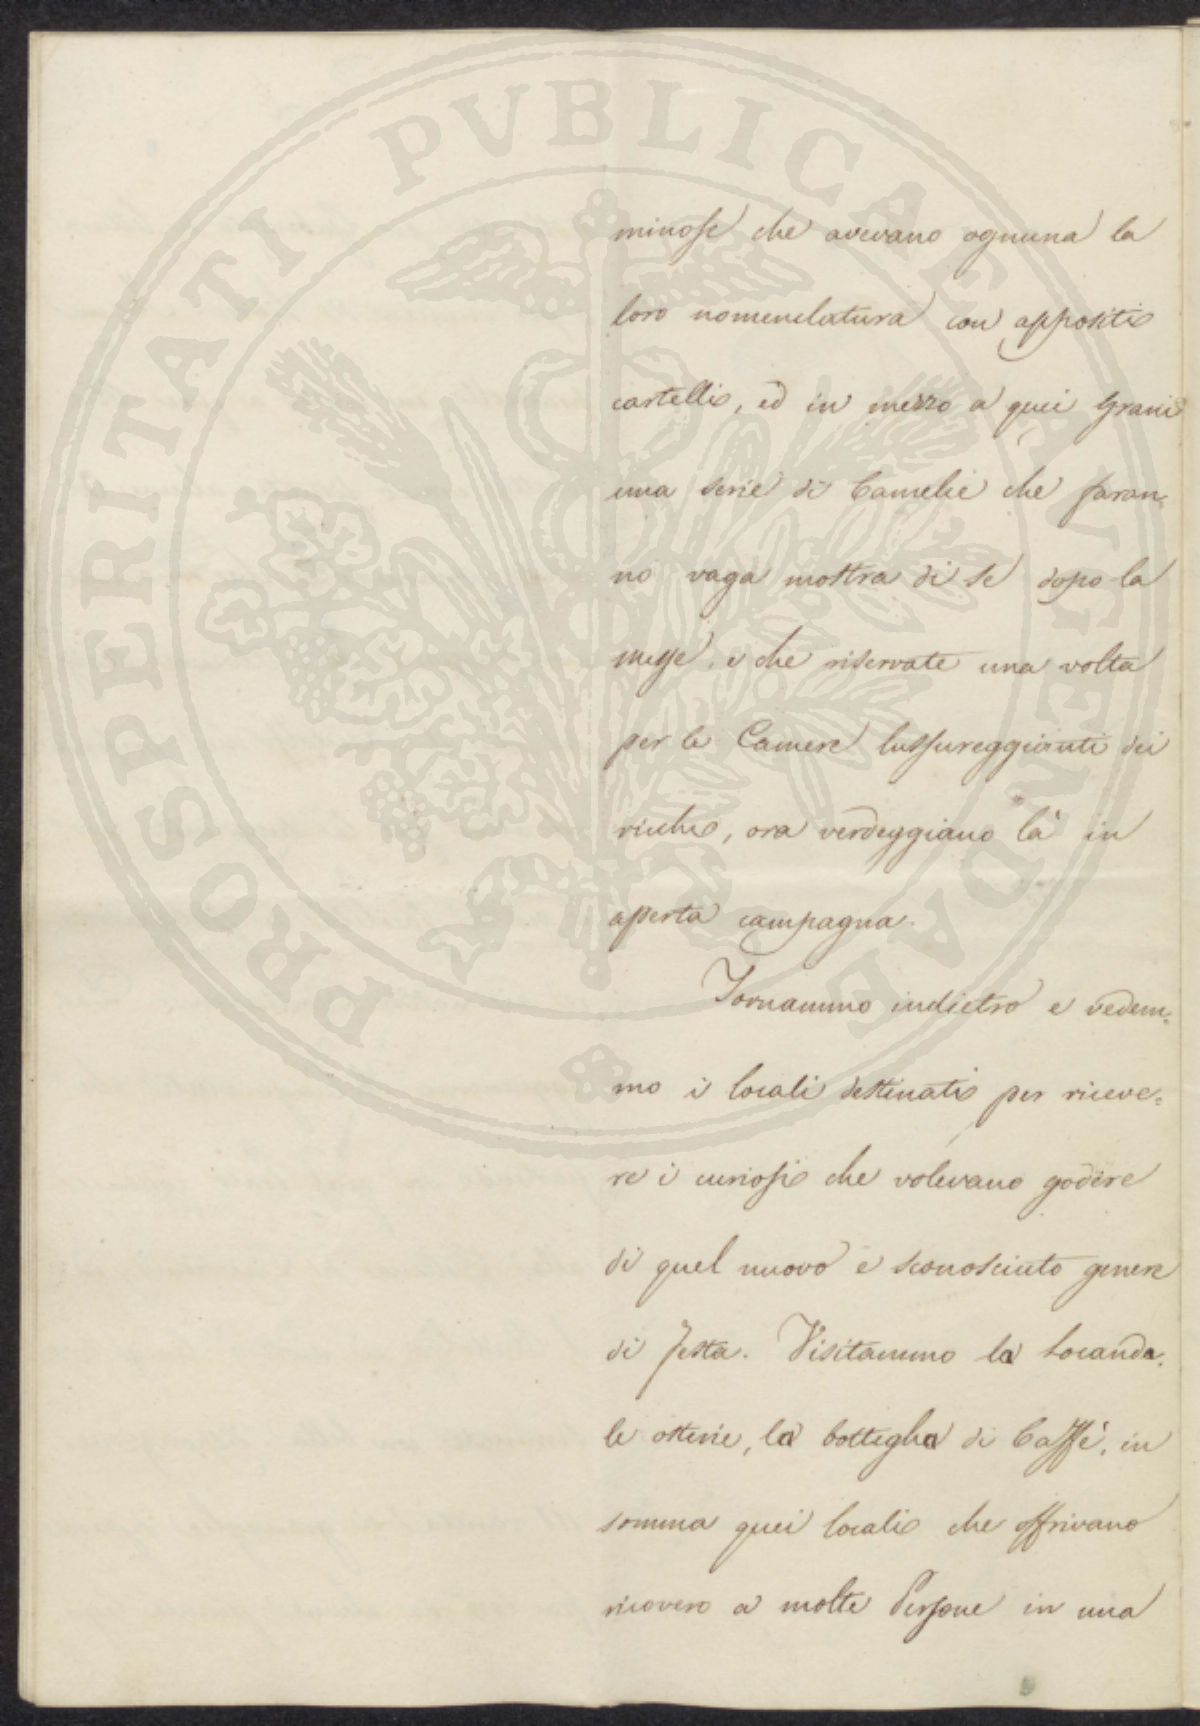 PROSPERITATI PVBLICAE AVGENDAE
minose che avevano ognuna la
loro nomenclatura con appositi
cartelli, ed in mezzo a quei Grani
una serie di Camelie che faran-
no vaga mostra di se dopo la
messe, e che riservate una volta
per le Camere lussureggianti dei
ricchi, ora verdeggiano là in
aperta campagna.
Tornammo indietro e vedem-
mo i locali destinati per riceve-
re i curiosi che volevano godere
di quel nuovo e sconosciuto genere
di festa. Visitammo la Locanda,
le osterie, la bottegha di Caffè, in
somma quei locali che offrivano
ricovero a molte Persone in una